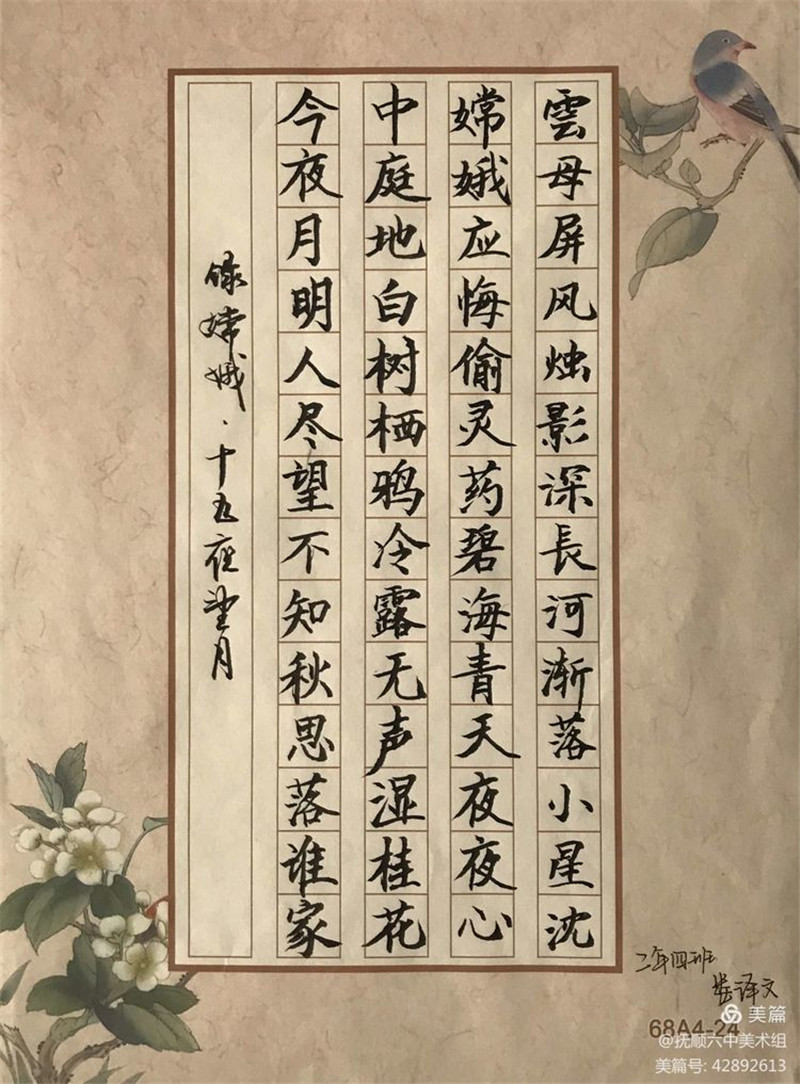 雲母屏风烛影深長河渐落小星沈
嫦娥应悔偷灵药碧海青天夜夜心
中庭地白树栖鸦冷露无声湿桂花
今夜月明人尽望不知秋思落谁家
录嫦娥·十五夜望月
二年四班
娄译文
68A4-24
美篇
@抚顺六中美术组
美篇号: 42892613